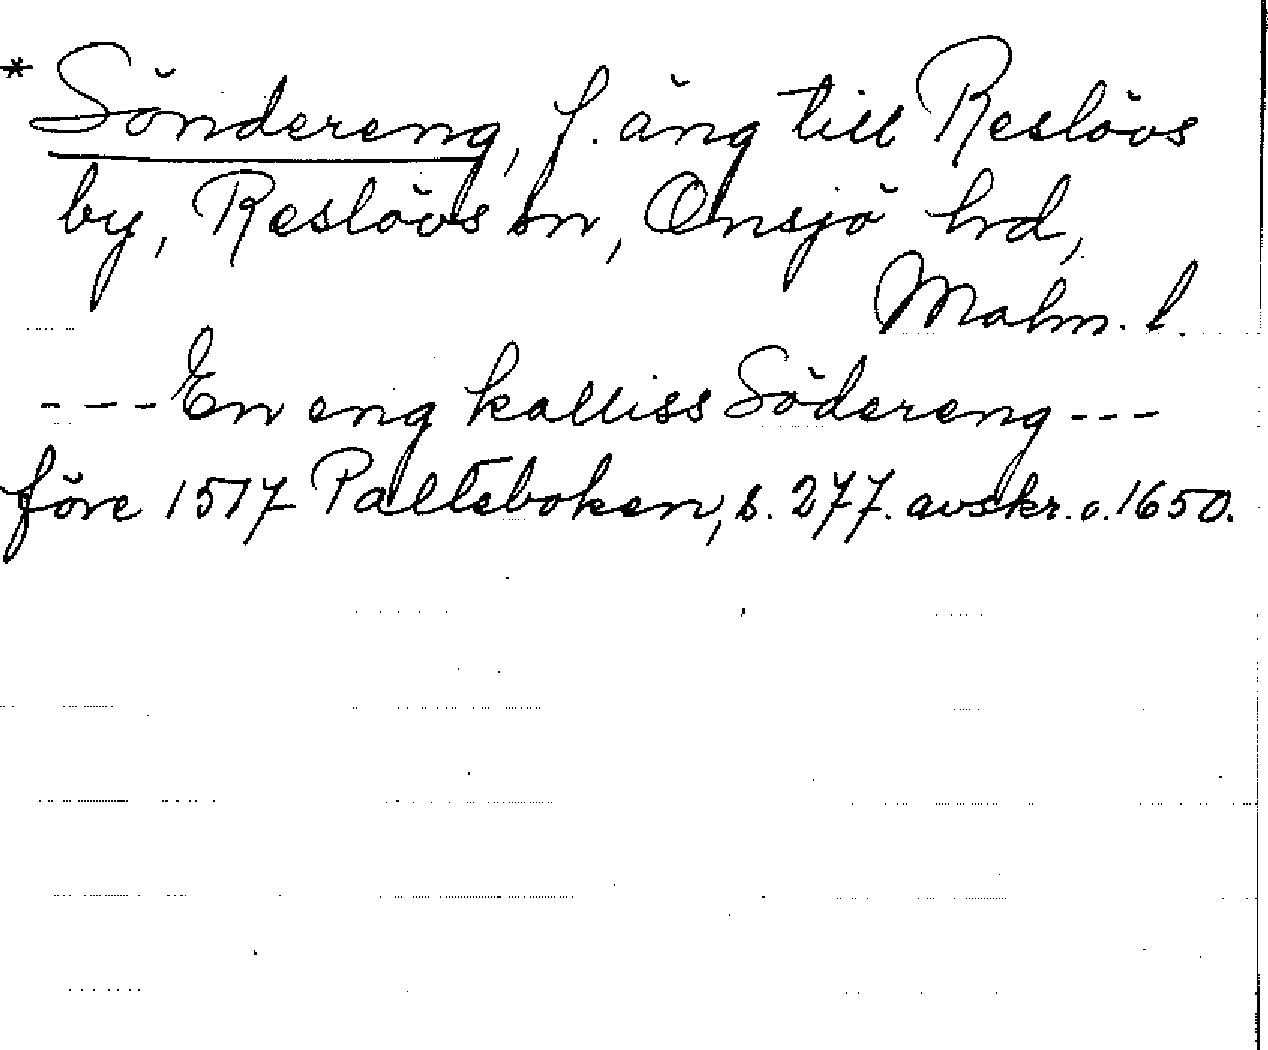 * Söndereng, f. äng till Reslövs
by, Reslövs sn, Onsjö hrd,
Malm. l.
--- En eng kalliss Södereng ---
före 1517 Palteboken, s. 277. avskr. o. 1650.